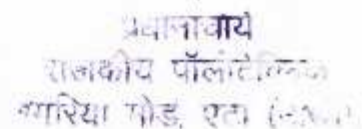 प्रधानाचार्य
राजकीय पॉलीटेक्निक
नगरिया मोड़, एटा